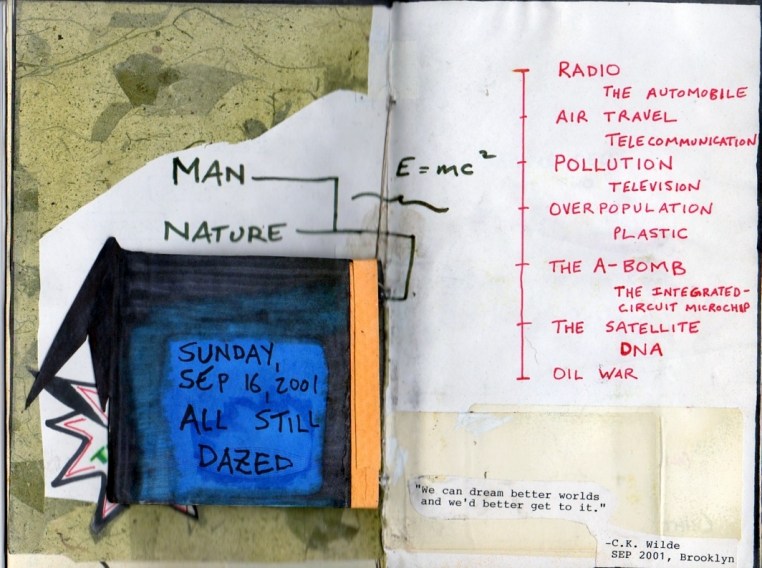 MAN
NATURE
SUNDAY,
SEP 16, 2001
ALL STILL
DAZED
E=mc²
RADIO
THE AUTOMOBILE
AIR TRAVEL
TELECOMMUNICATION
POLLUTION
TELEVISION
OVERPOPULATION
PLASTIC
THE A-BOMB
THE INTEGRATED-
CIRCUIT MICROCHIP
THE SATELLITE
DNA
OIL WAR
"We can dream better worlds
and we'd better get to it."
-C.K. Wilde
SEP 2001, Brooklyn